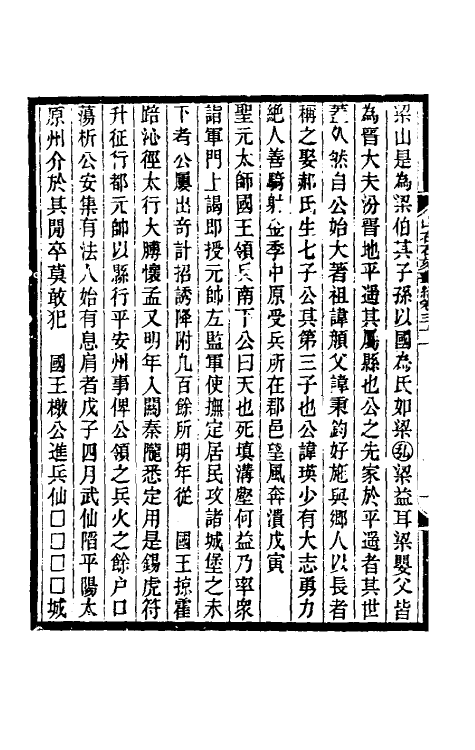 梁山是為梁伯其子孫以國為氏如梁弘梁益耳梁嬰父皆
為晉大夫汾晉地平遥其屬縣也公之先家於平遥者其世
葢久然自公始大著祖諱頠父諱秉鈞好施與鄉人以長者
稱之娶郝氏生七子公其第三子也公諱瑛少有大志勇力
絶人善騎射金季中原受兵所在郡邑望風奔潰戊寅
聖元太師國王領兵南下公曰天也死填溝壑何益乃率衆
詣軍門上謁即授元帥左監軍使撫定居民攻諸城堡之未
下者公屢出奇計招誘降附几百餘所明年從　國王掠霍
踣沁徑太行大膊懷孟又明年入關秦隴悉定用是錫虎符
升征行都元帥以縣行平安州事俾公領之兵火之餘户口
蕩析公安集有法人始有息肩者戊子四月武仙陷平陽太
原州介於其閒卒莫敢犯　國王檄公進兵仙□□□□城